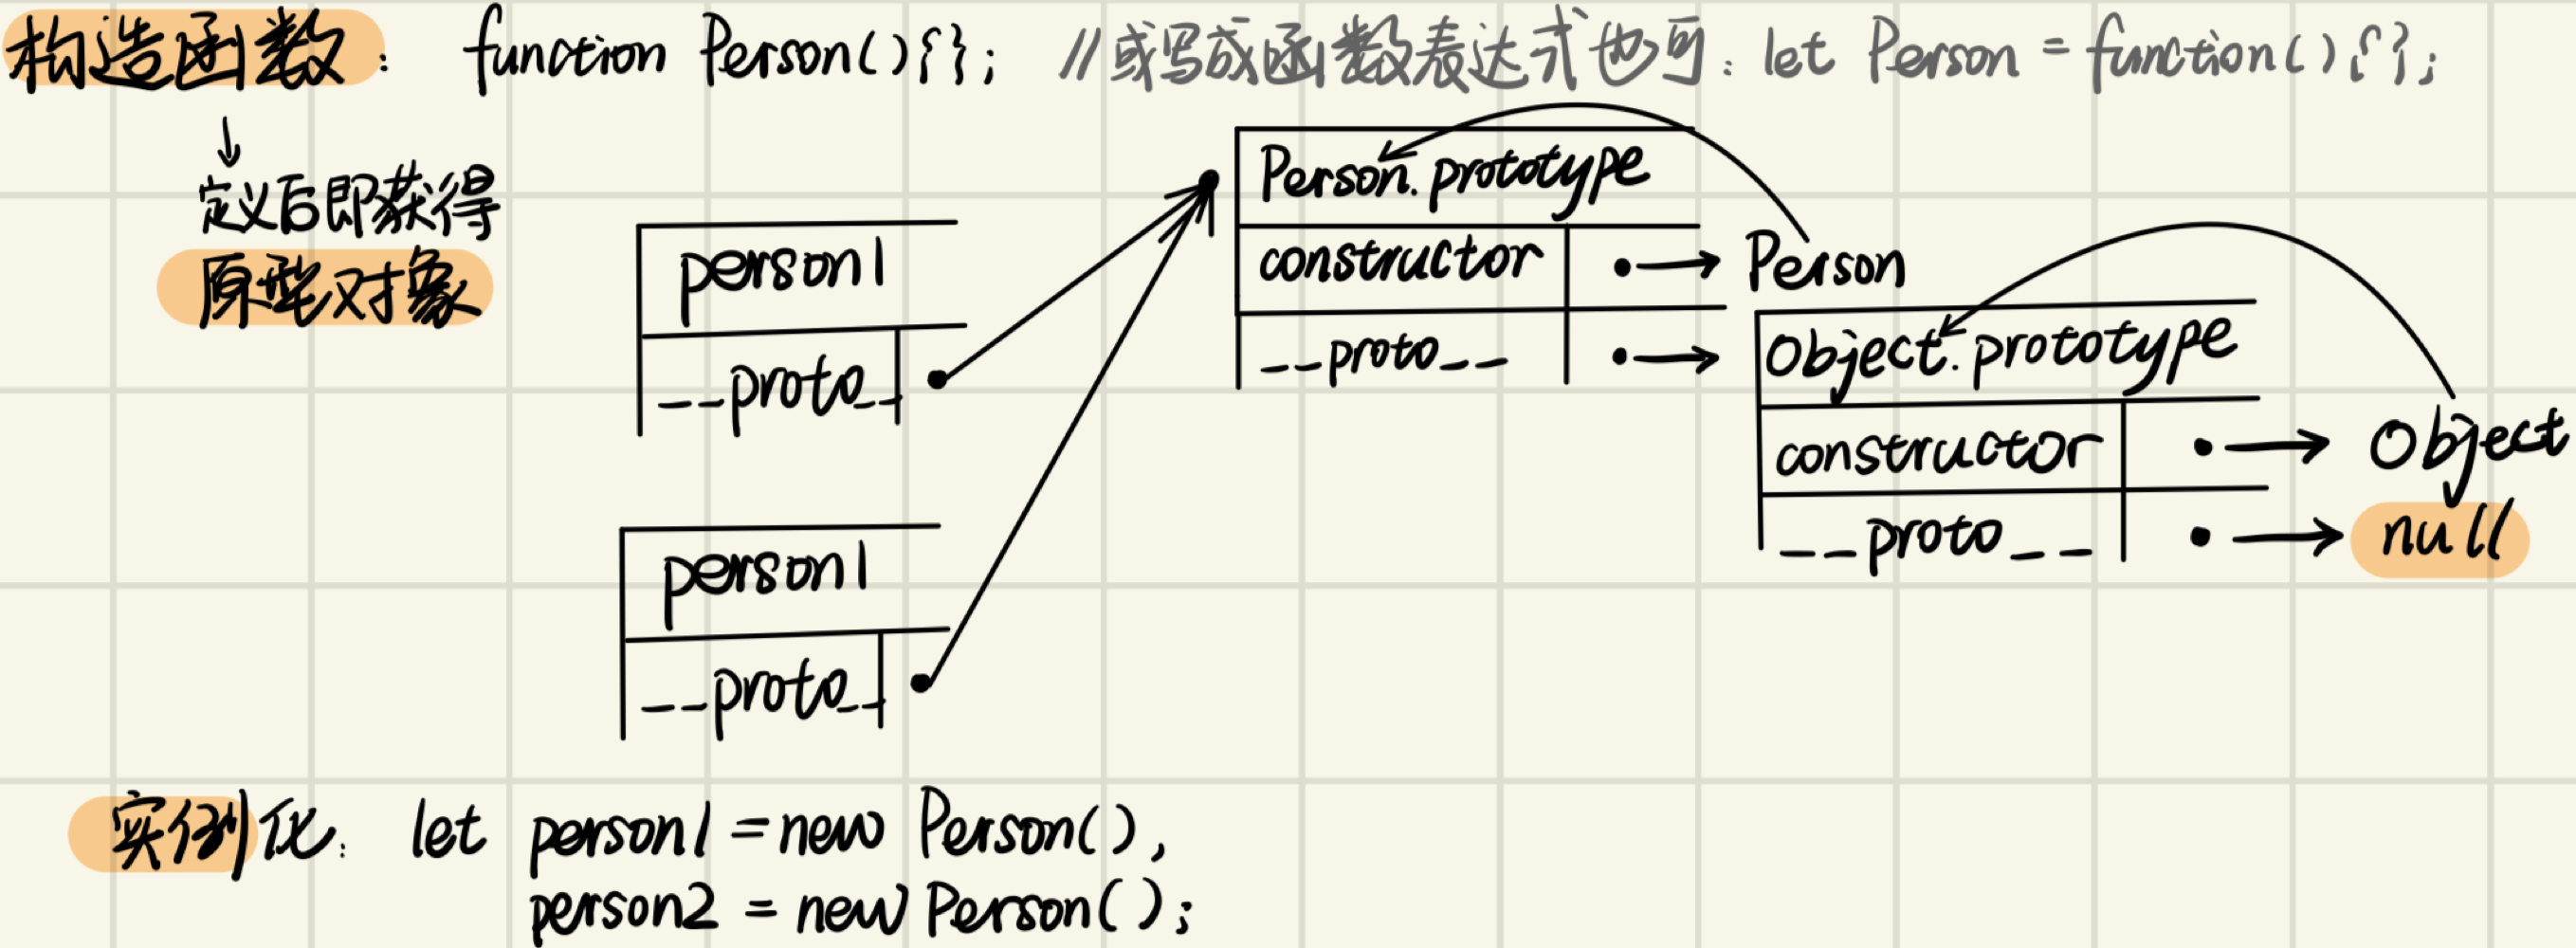 构造函数: function Person(){}; //或写成函数表达式也可: let Person = function(){};
↓
定义后即获得
原型对象
Person.prototype
constructor → Person
__proto__ →
person1
__proto__
Object.prototype
constructor → Object
__proto__ → null
person1
__proto__
实例化: let person1 = new Person(),
person2 = new Person();